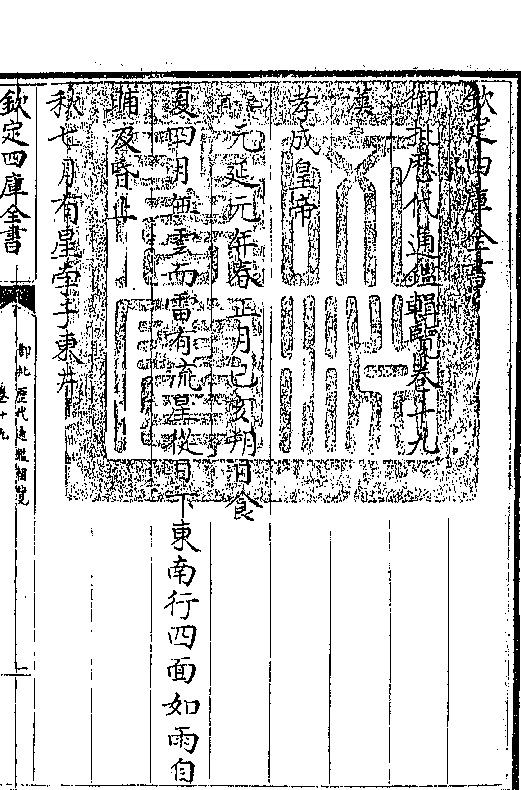 欽定四庫全書
御批歴代通鑑輯覽卷十九
漢
孝成皇帝
元延元年春正月己亥朔日食
夏四月無雲而雷有流星從日下東南行四面如雨自
晡及昏止
秋七月有星孛于東井
欽定四庫全書
御批歴代通鑑輯覽
卷十九
一